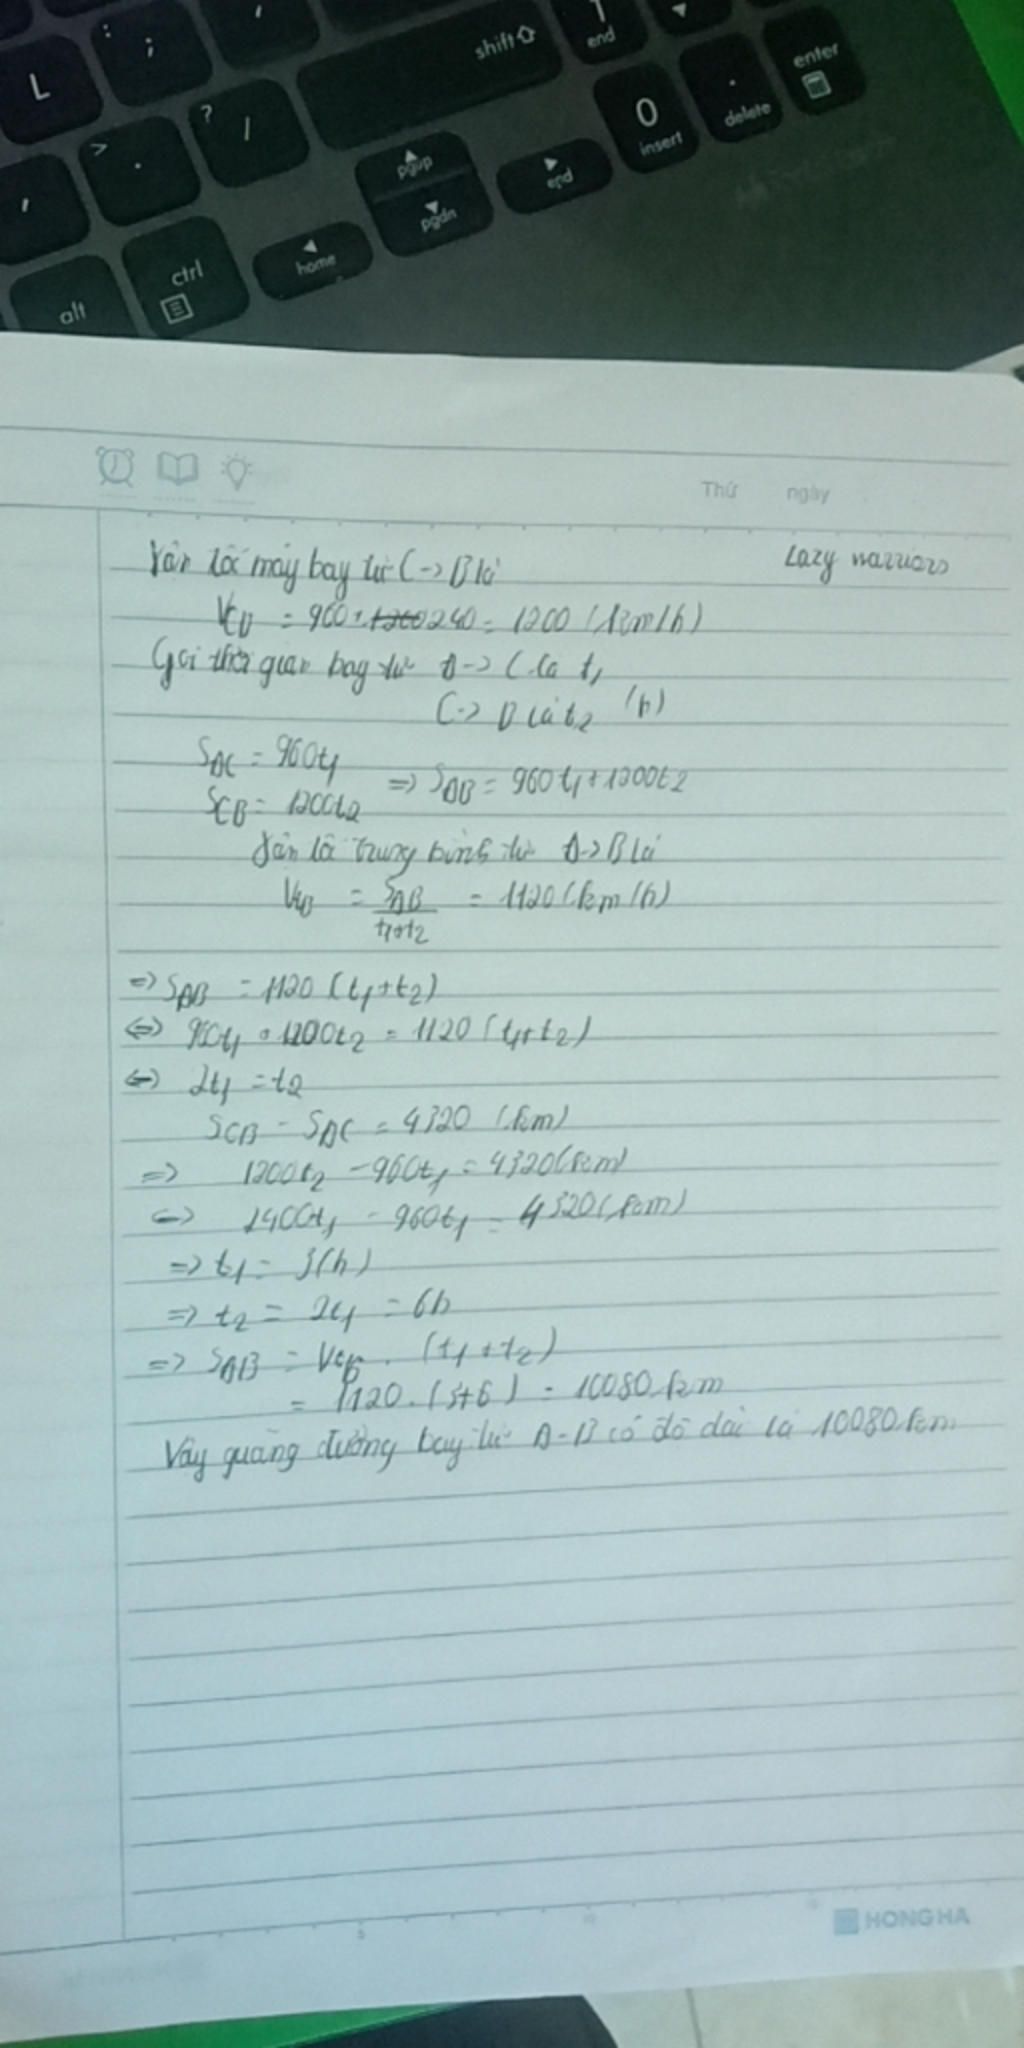 L
: ;
shift
end
enter
? /
0 insert
. delete
> .
pgup
end
pgdn
home
ctrl
alt
Thứ ngày
Lazy warriors
Vận tốc máy bay từ C -> B là
VCB = 960 + 240 = 1200 (km/h)
Gọi thời gian bay từ A -> C là t1
C -> B là t2 (h)
SAC = 960t1
=> SAB = 960t1 + 1200t2
SCB = 1200t2
Vận tốc trung bình từ A -> B là
Vtb = SAB / t1+t2 = 1120 (km/h)
=> SAB = 1120 (t1+t2)
<=> 960t1 + 1200t2 = 1120 (t1+t2)
<=> 2t1 = t2
SCB - SAC = 4320 (km)
=> 1200t2 - 960t1 = 4320 (km)
<=> 2400t1 - 960t1 = 4320 (km)
=> t1 = 3(h)
=> t2 = 2t1 = 6h
=> SAB = Vtb . (t1+t2)
= 1120 . (3+6) = 10080 km
Vậy quãng đường bay từ A-B có độ dài là 10080 km
HONG HA